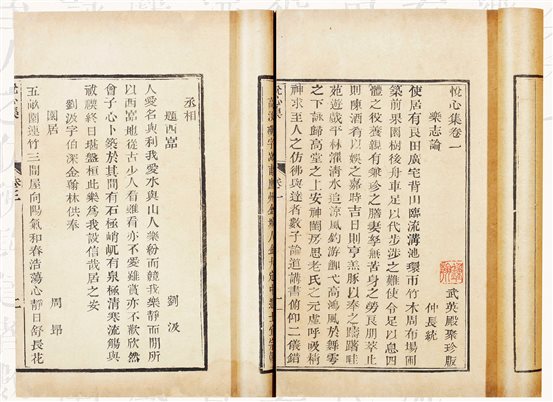 悅心集卷一
武英殿聚珍版
樂志論
仲長統
使居有良田廣宅背山臨流溝池環市竹木周布場圃
築前果園樹後舟車足以代步涉之難使令足以息四
體之役養親有兼珍之膳妻孥無苦身之勞良朋萃止
則陳酒肴以娛之嘉時吉日則亨羔豚以奉之躊躇畦
苑遊戲平林濯清水追涼風釣游鯉弋高鴻風於舞雩
之下詠歸高堂之上安神閨房思老氏之元虛呼吸精
神求至人之仿彿與達者數子論道講書俯仰二儀錯
卷一
一
丞相
題西嵓
劉汲
人愛名與利我愛水與山人樂紛而競我樂靜而閒所
以西嵓地從古少人看雖看亦不愛雖賞亦不歡欣然
會予心卜築於其間有石極峭屼有泉極清寒流觴與
祓禊終日堪盤桓此樂為我設信哉居之安
劉汲字伯深金翰林供奉
閑居
周昂
五畝園連竹三間屋向陽氣和春浩蕩心靜日舒長花
悅心集
卷三